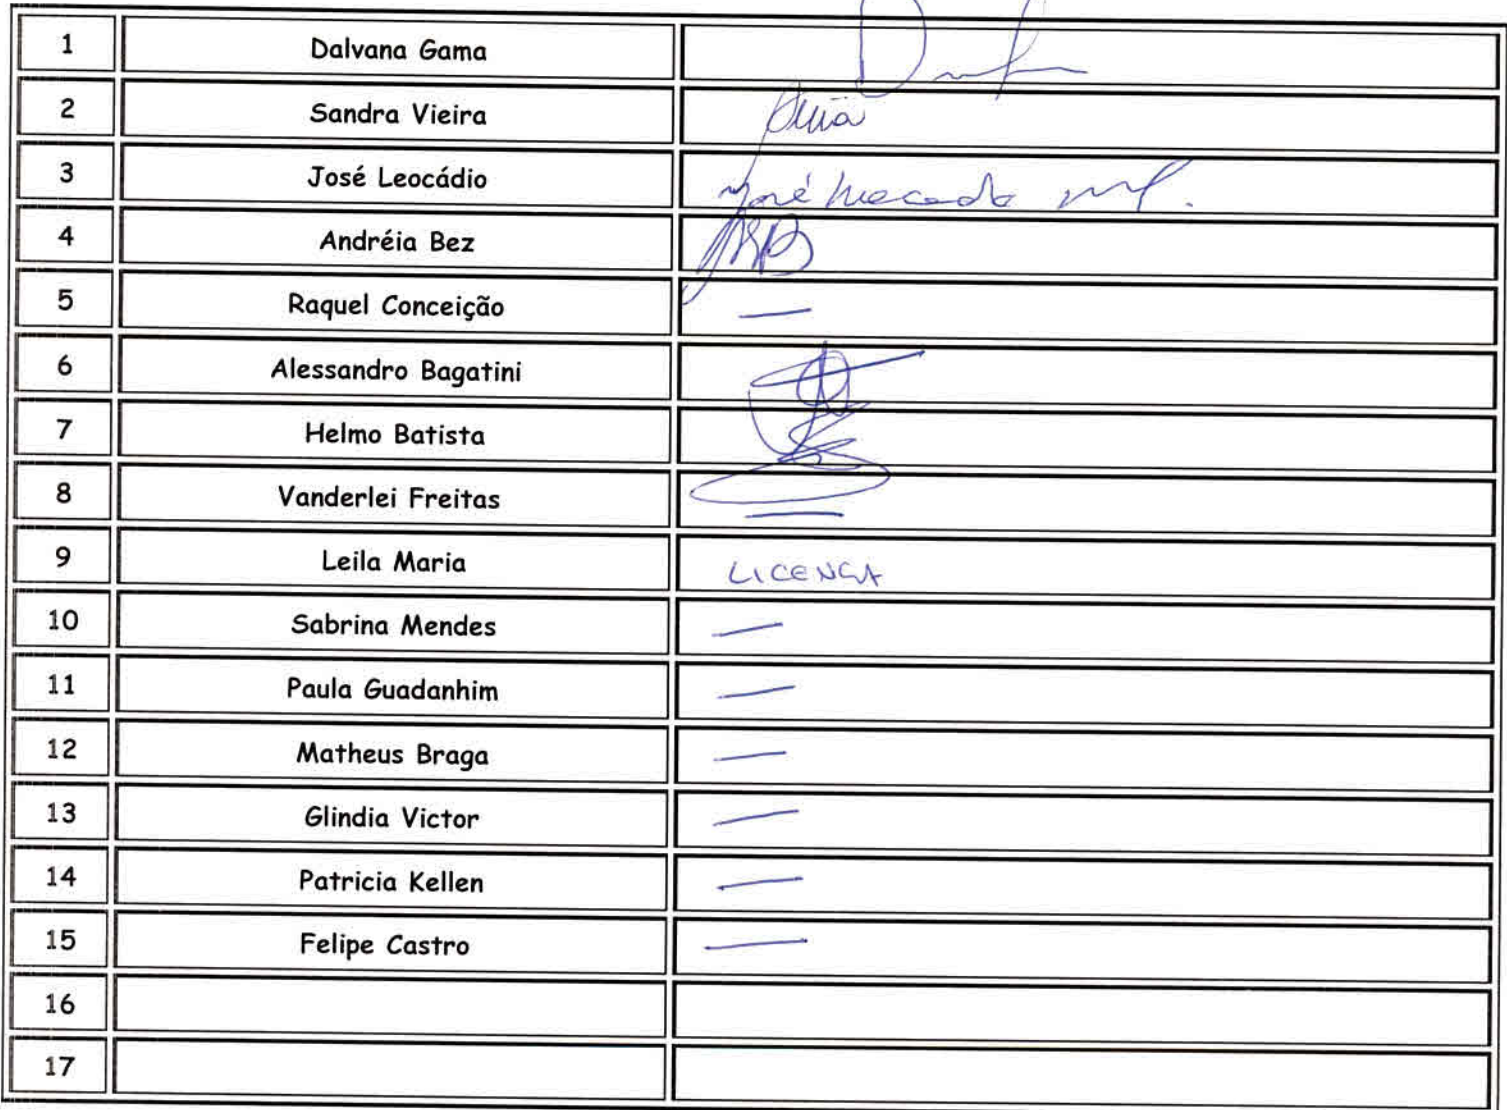 1 Dalvana Gama
2 Sandra Vieira
3 José Leocádio José
4 Andréia Bez
5 Raquel Conceição —
6 Alessandro Bagatini
7 Helmo Batista
8 Vanderlei Freitas —
9 Leila Maria LICENÇA
10 Sabrina Mendes —
11 Paula Guadanhim —
12 Matheus Braga —
13 Glindia Victor —
14 Patricia Kellen —
15 Felipe Castro —
16
17